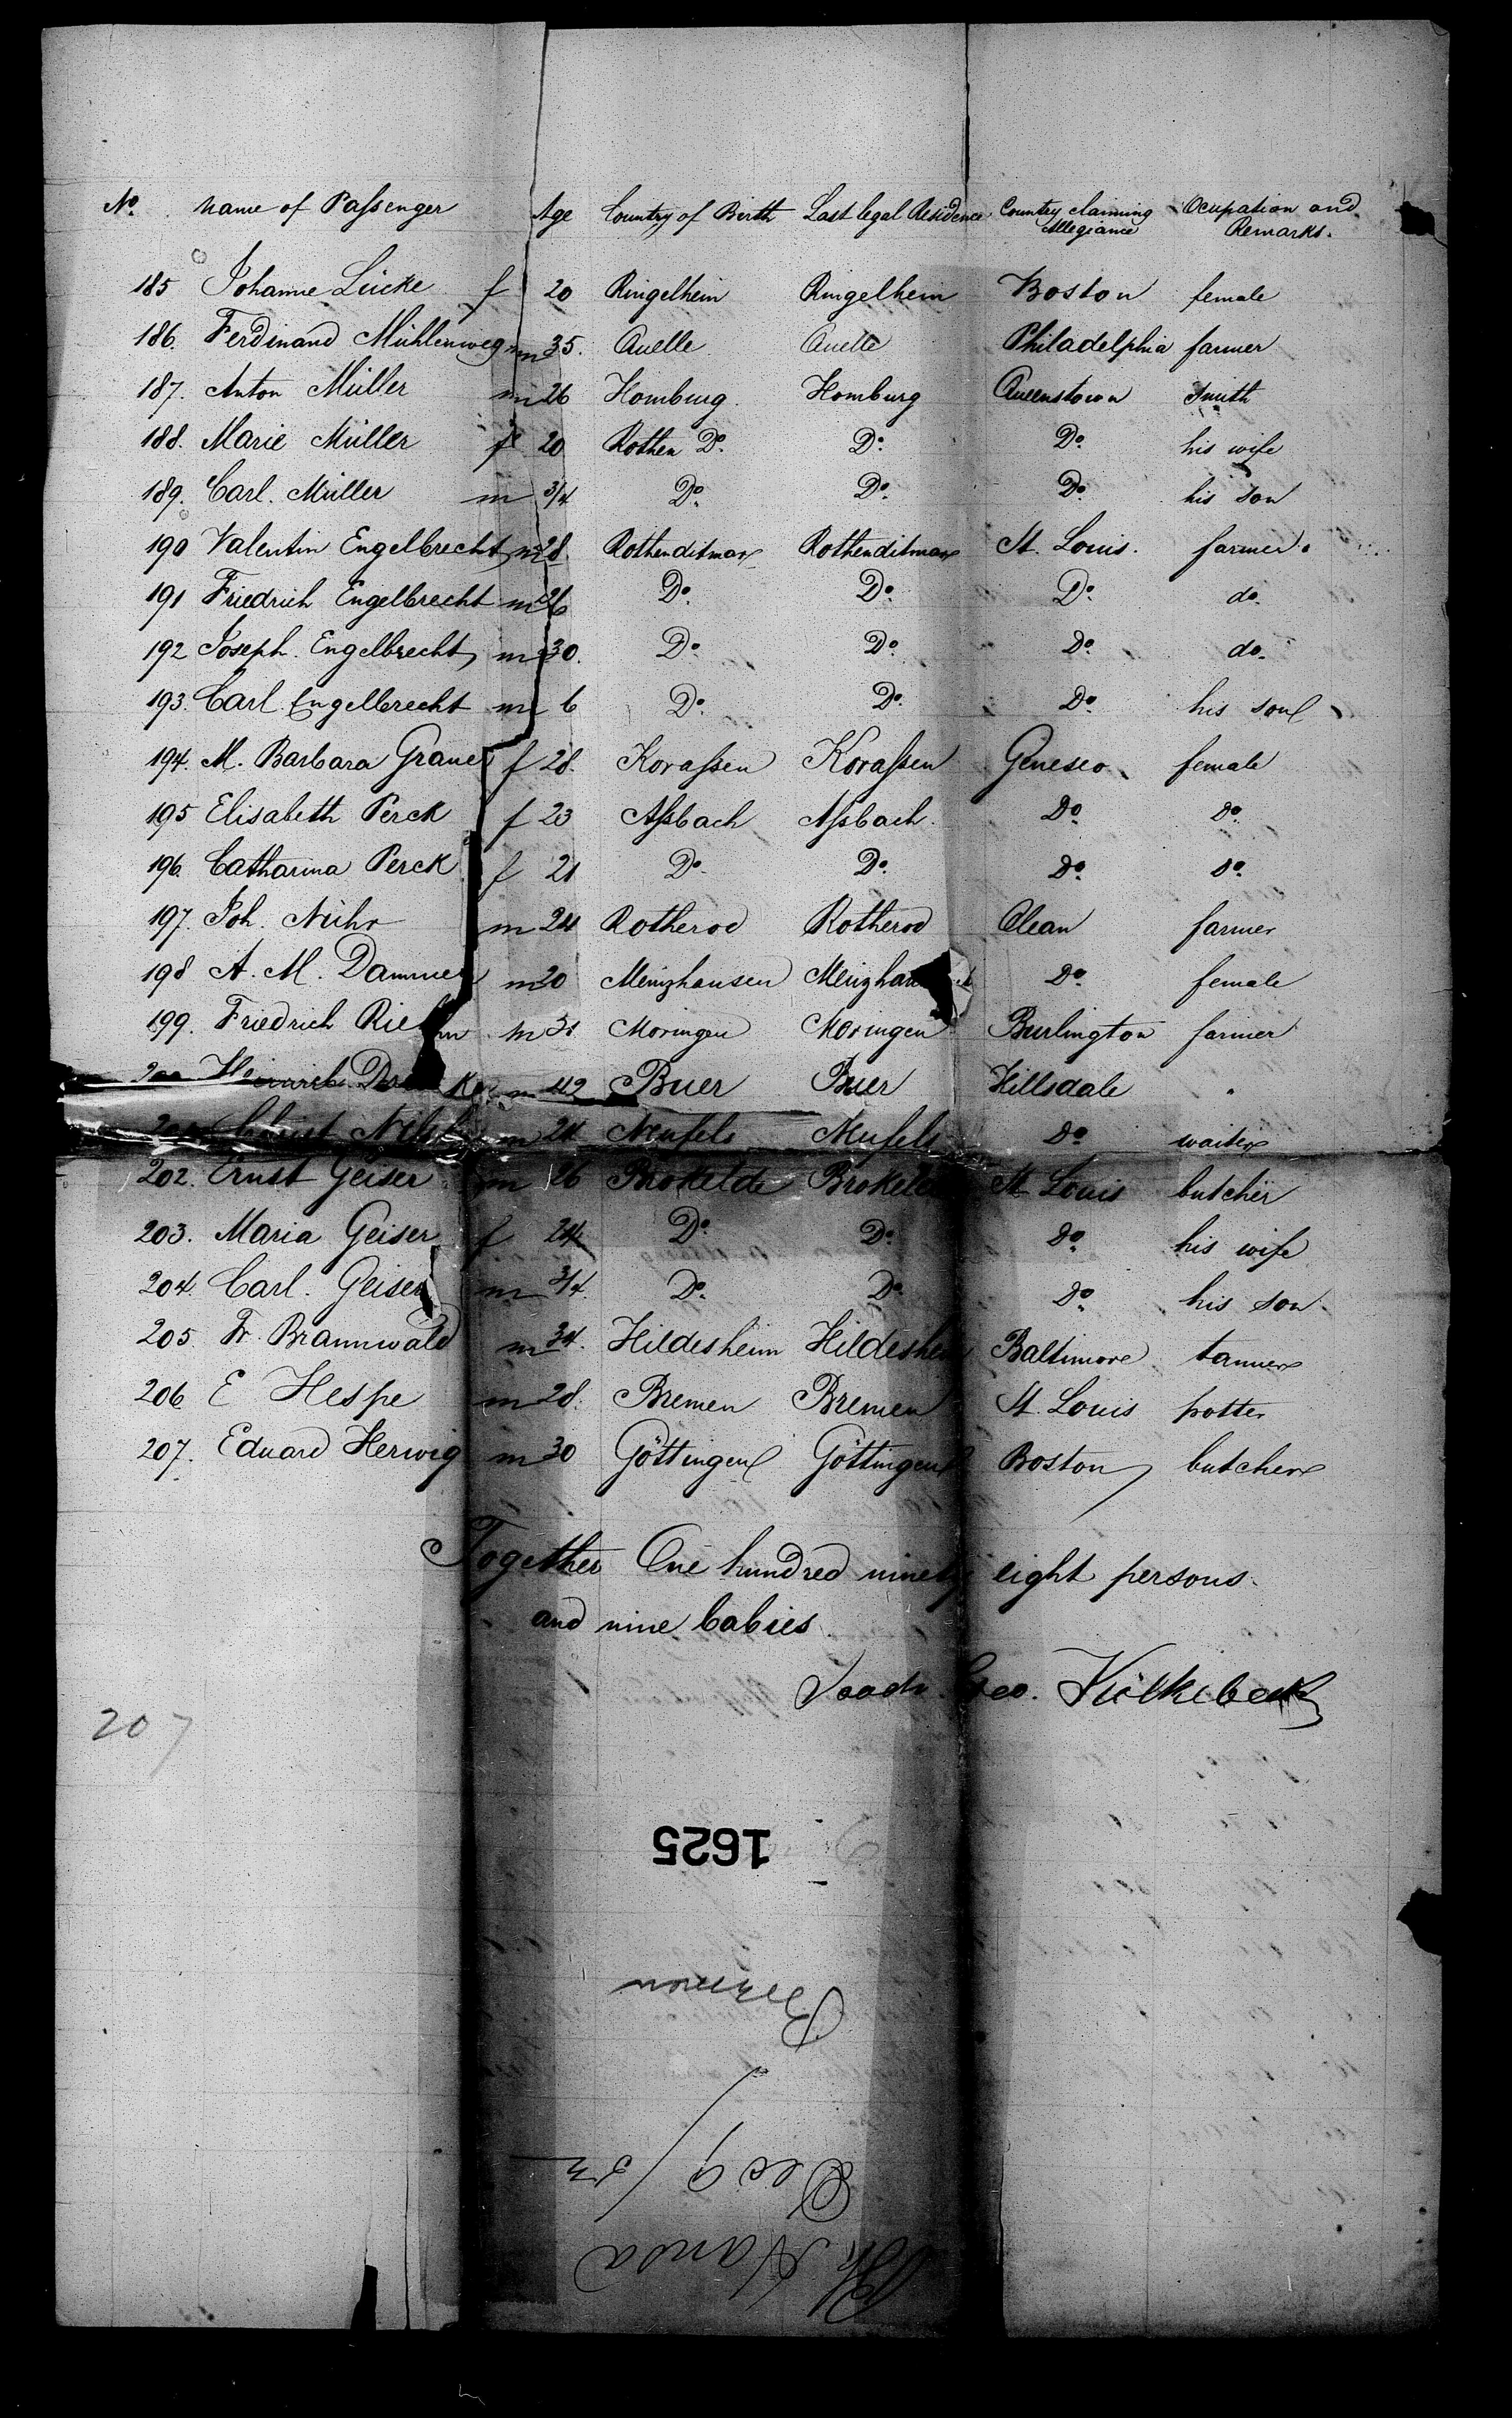 No. Name of Passenger Age Country of Birth Last legal Residence Country claiming Allegiance Ocupation and Remarks.
185 Johanne Lücke f 20 Ringelheim Ringelheim Boston female
186. Ferdinand Mühlenweg m 35. Quelle Quelle Philadelphia farmer
187. Anton Müller m 26 Homburg. Homburg Queenstown Smith
188. Marie Müller f 20 Rothen Do. Do. Do. his wife
189. Carl. Müller m 3/4 Do. Do. Do. his son
190 Valentin Engelbrecht m 28. Rothenditmar Rothenditmar St. Louis. farmer.
191 Friedrich Engelbrecht m 26 Do. Do. Do. do.
192 Joseph. Engelbrecht m 30. Do. Do. Do. do.
193. Carl. Engelbrecht m 6 Do. Do. Do. his son
194. M. Barbara Graner f 28. Koraßen Koraßen Geneseo female
195 Elisabeth Perck f 23 Aßbach Aßbach. Do. Do.
196. Catharina Perck f 21 Do. Do. Do. Do.
197. Joh. Nühr m 24 Rotherod Rotherod Olean farmer
198 A. M. Dammer m 20 Meinzhausen Do. female
199. Friedrich m 31 Moringen Moringen Burlington farmer
200 Heinrich m 42 Buer Buer Hillsdale "
m 24 Neufels Neufels Do. waiter
202. Ernst Geiser m 26 Brokelde Brokelde St. Louis butcher
203. Maria Geiser f 24 Do. Do. Do. his wife
204. Carl. Geiser m 3/4. Do. Do. Do. his son.
205. Fr. Braunwald m 34. Hildesheim Hildesheim Baltimore tanner
206 E Hespe m 28. Bremen Bremen St. Louis potter
207. Eduard Herwig m 30 Göttingen Göttingen Boston butcher
Together One hundred ninety eight persons.
and nine babies.
Joach. Geo. Külkebeck
207
1625
Bremen
Dec 9/52
Sh. Hansa